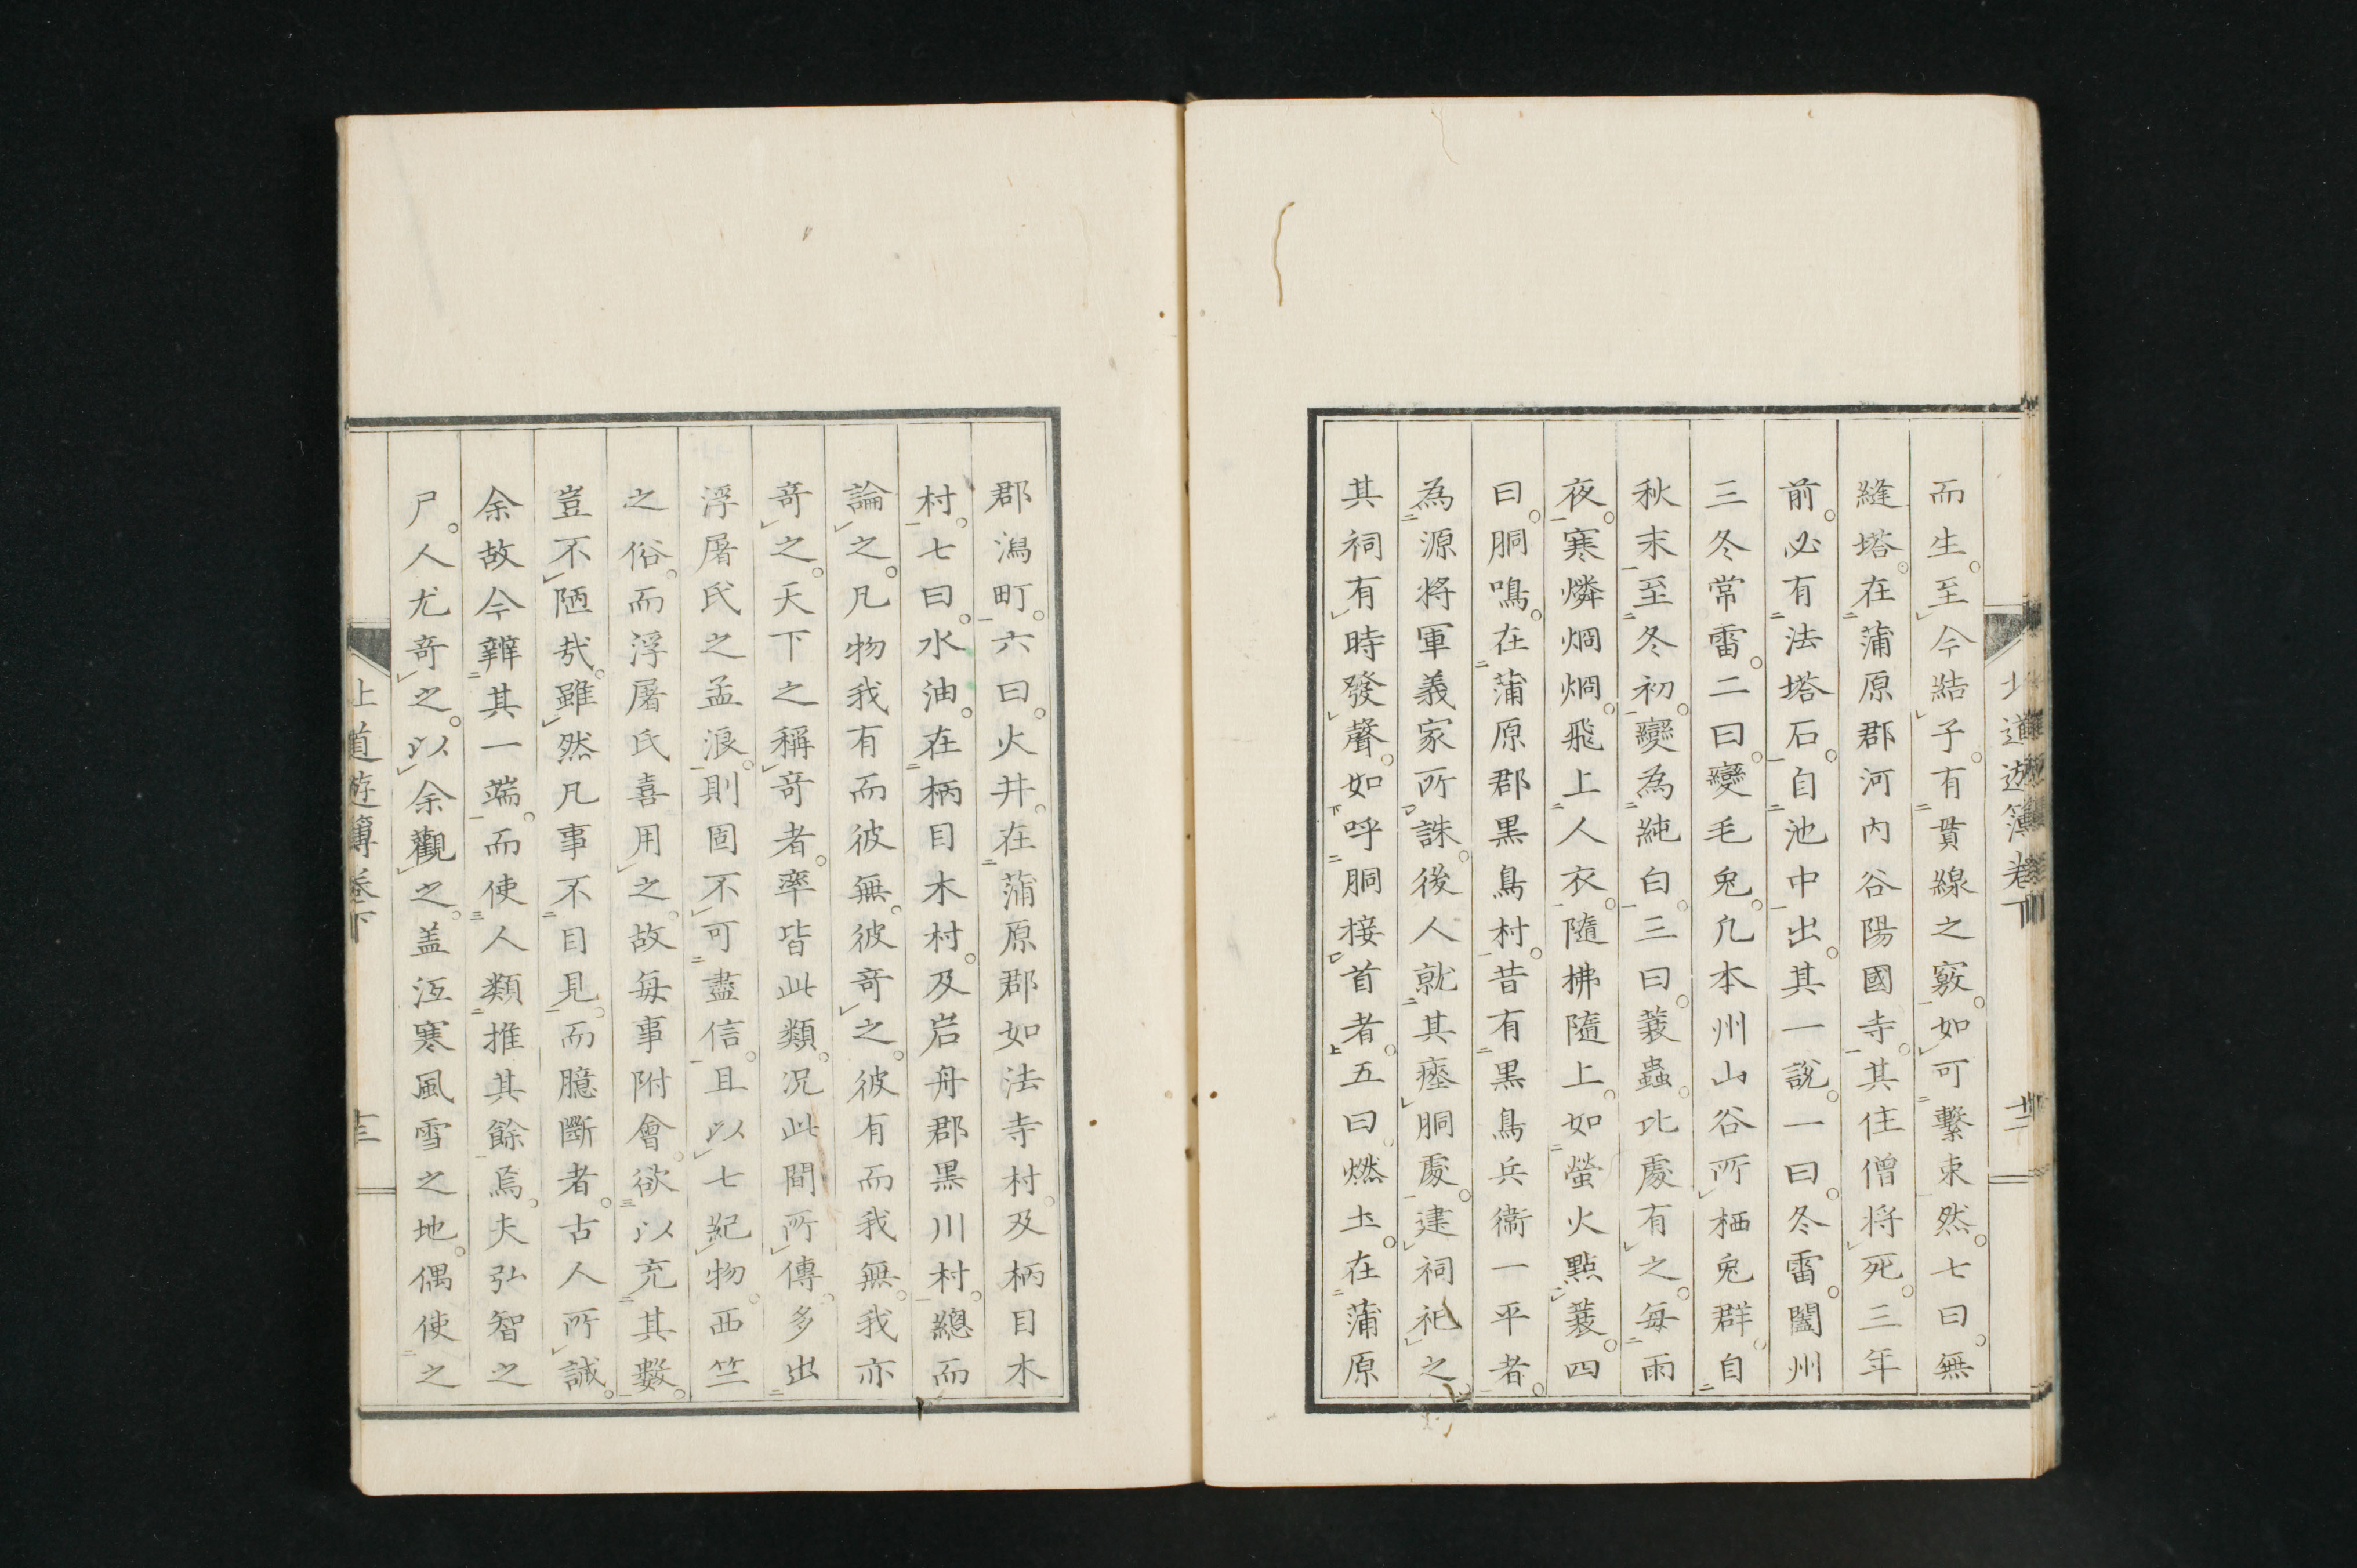 而生。至今結子。有貫線之竅。如可繫束然。七曰。無
縫塔。在蒲原郡河内谷陽國寺。其住僧將死。三年
前。必有法塔石。自池中出。其一説。一曰。冬雷。闔州
三冬常雷。二曰。變毛兎。凡本州山谷所栖兎群。自
秋末至冬初。變為純白。三曰。蓑蟲。比處有之。每雨
夜。寒燐烱烱。飛上人衣。隨拂隨上。如螢火點蓑。四
曰。胴鳴。在蒲原郡黒鳥村。昔有黒鳥兵衞一平者。
為源將軍義家所誅。後人就其瘞胴處。建祠祀之。
其祠有時發聲。如呼胴接首者。五曰。燃土。在蒲原
北道遊簿卷下
十二
郡潟町。六曰。火井。在蒲原郡如法寺村。及柄目木
村。七曰。水油。在柄目木村。及岩舟郡黒川村。總而
論之。凡物我有而彼無。彼竒之。彼有而我無。我亦
竒之。天下之稱竒者。率皆此類。況此間所傳。多出
浮屠氏之孟浪。則固不可盡信。且以七紀物。西竺
之俗。而浮屠氏喜用之。故每事附會。欲以充其數。
豈不陋哉。雖然凡事不目見。而臆斷者。古人所誡。
余故今辨其一端。而使人類推其餘焉。夫弘智之
尸。人尤竒之。以余觀之。盖沍寒風雪之地。偶使之
北道遊簿卷下
十三